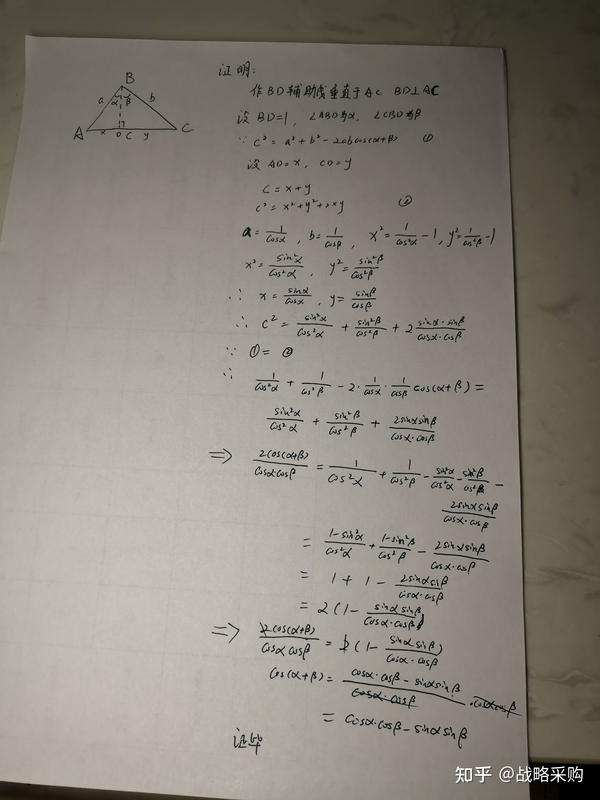 B
a α β b
A x D C y C
证明:
作BD辅助线垂直于AC BD⊥AC
设 BD=1, ∠ABD为α, ∠CBD为β
∵ c² = a² + b² - 2abcos(α+β) ①
设 AD=x, CD=y
c = x+y
c² = x²+y²+2xy ②
a = 1/cosα , b = 1/cosβ , x² = 1/cos²α - 1, y² = 1/cos²β - 1
x² = sin²α/cos²α , y² = sin²β/cos²β
∴ x = sinα/cosα , y = sinβ/cosβ
∴ c² = sin²α/cos²α + sin²β/cos²β + 2 sinα·sinβ/cosα·cosβ
∵ ① = ②
∴
1/cos²α + 1/cos²β - 2·1/cosα·1/cosβ cos(α+β) =
sin²α/cos²α + sin²β/cos²β + 2sinαsinβ/cosα·cosβ
⇒ 2cos(α+β)/cosαcosβ = 1/cos²α + 1/cos²β - sin²α/cos²α - sin²β/cos²β -
2sinαsinβ/cosα·cosβ
= 1-sin²α/cos²α + 1-sin²β/cos²β - 2sinαsinβ/cosα·cosβ
= 1 + 1 - 2sinαsinβ/cosα·cosβ
= 2(1 - sinαsinβ/cosα·cosβ)
⇒ 2cos(α+β)/cosαcosβ = 2(1 - sinαsinβ/cosα·cosβ)
cos(α+β) = cosα·cosβ - sinαsinβ/cosα·cosβ ·cosαcosβ
= cosα·cosβ - sinαsinβ
证毕
知乎 @战略采购